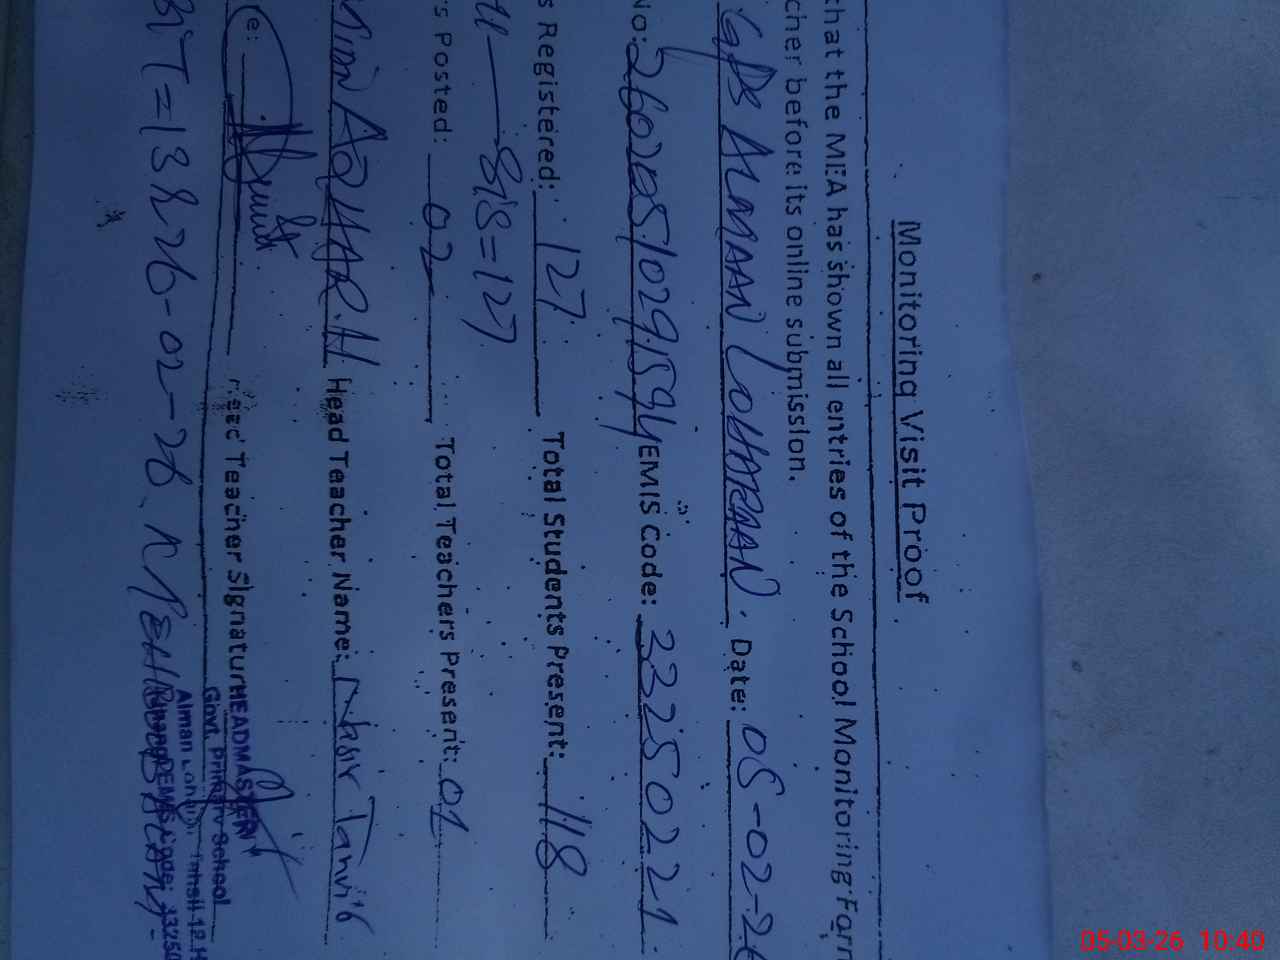 Monitoring Visit Proof
that the MEA has shown all entries of the School Monitoring Form
cher before its online submission.
GPS ALMAAN LOHARAAN. Date: 05-02-26
No: EMIS Code: 33250221.
s Registered: 127 Total Students Present: 118
B,S=127
rs Posted: 02 Total Teachers Present: 01
AZHAR.H Head Teacher Name: Nasir Tanvir
e: Head Teacher Signatur
HEADMASTER
Govt. Primary School
Alman
EMIS Code: 33250
26-02-26
05-03-26 10:40